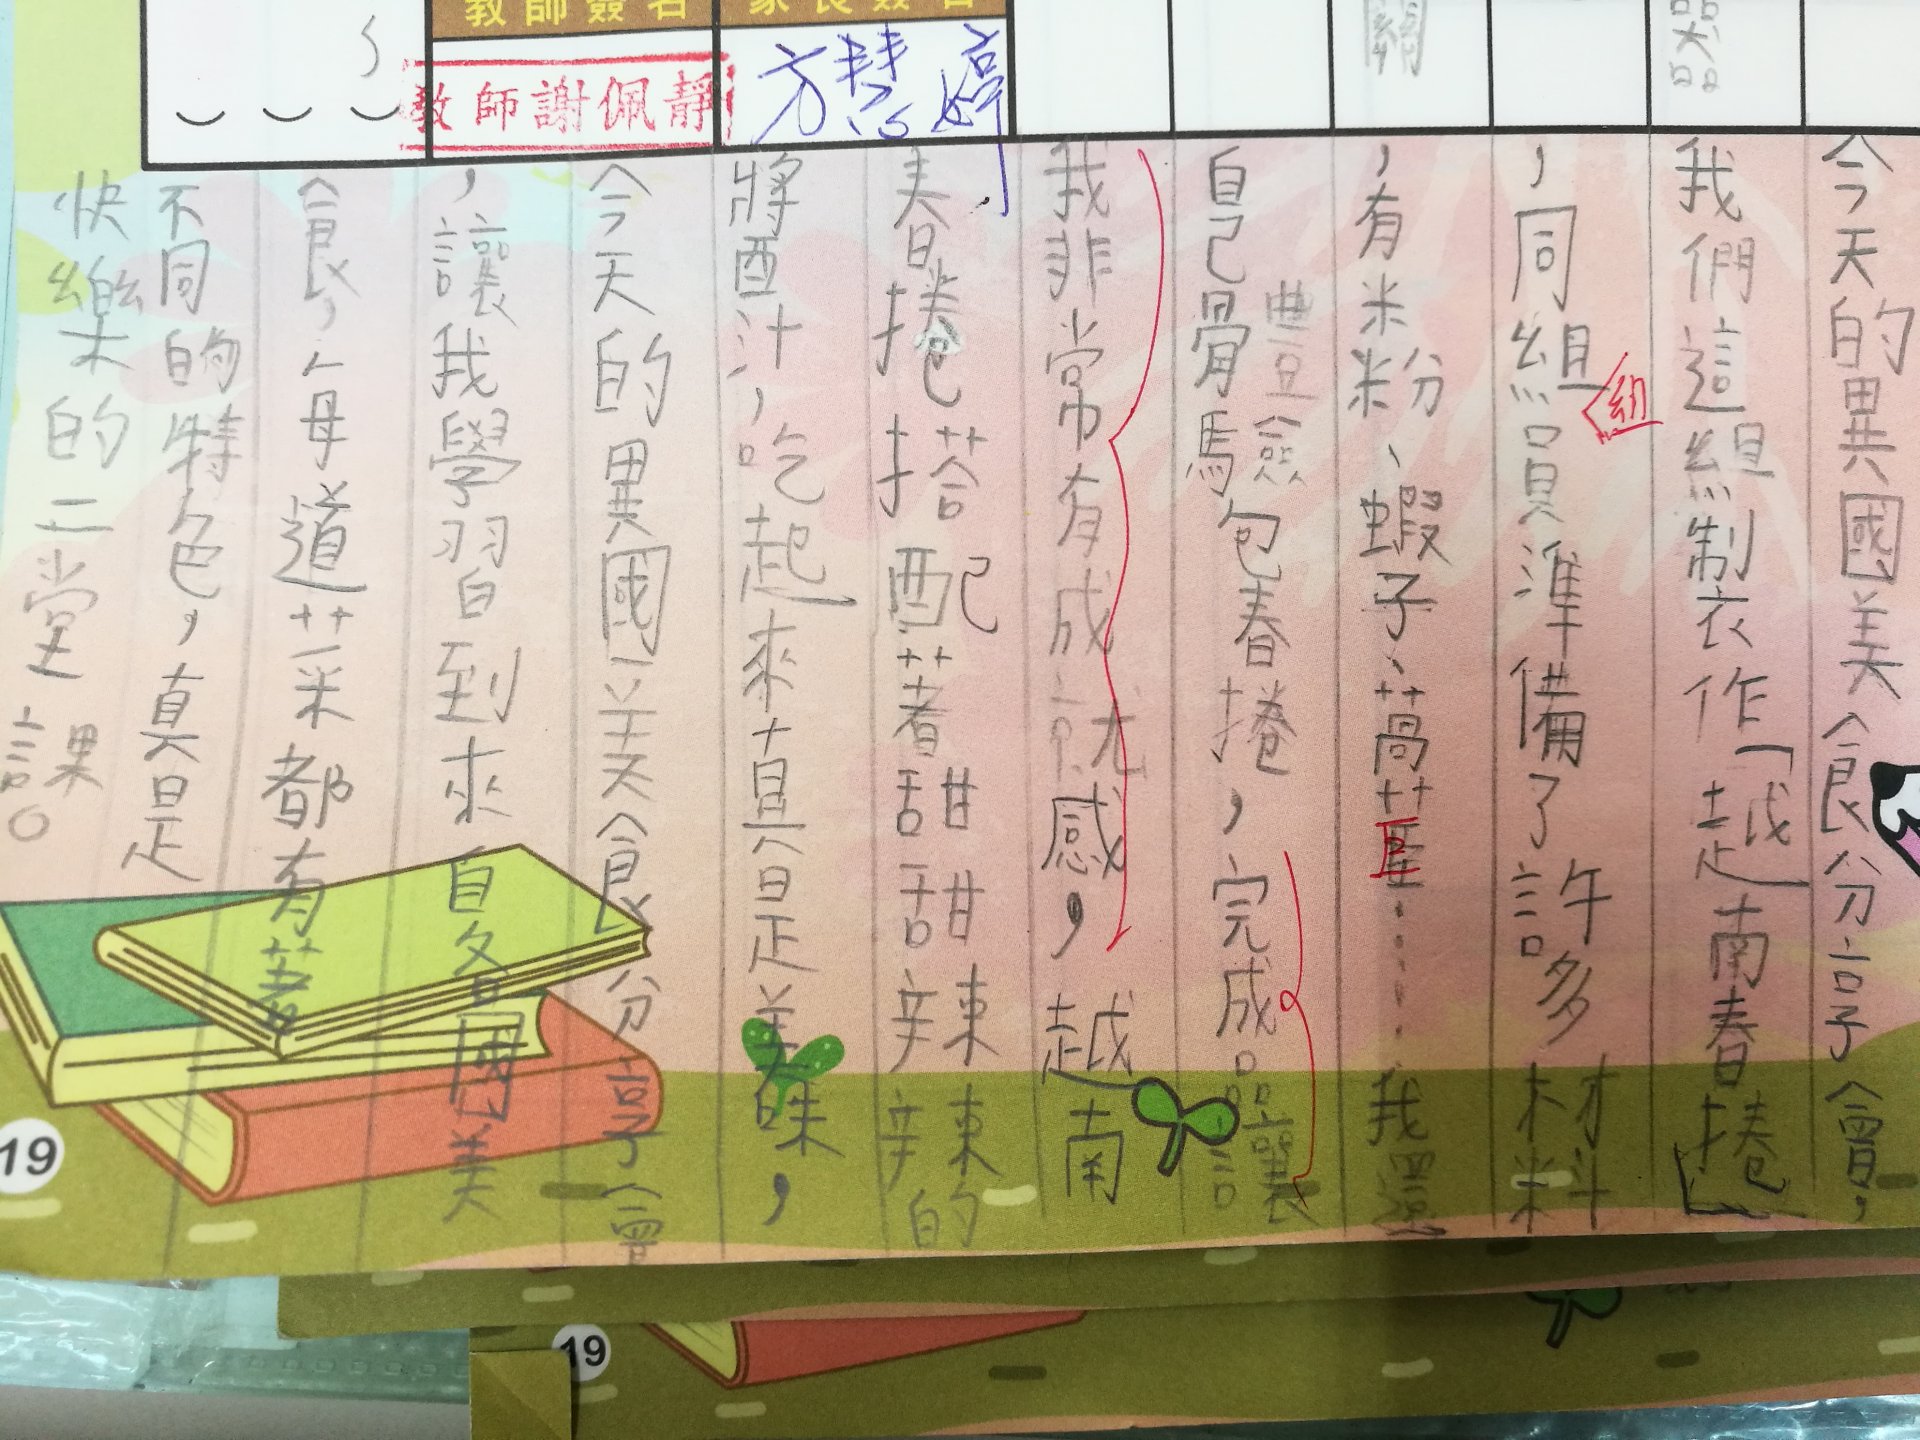 教師簽名
家長簽名
教師謝佩靜
方慧婷
今天的異國美食分享會，
我們這組制衣作「越南春捲」
，同組員準備了許多材料
組
，有米粉、蝦子、萵苣……我還
自己體驗包春捲，完成品讓
我非常有成就感，越南
春捲搭配著甜甜辣辣的
將酉汁，吃起來真是美味，
今天的異國美食分享會
，讓我學習到來自各國美
食，每道菜都有著
不同的特色，真是
快樂的二堂課。
19
19